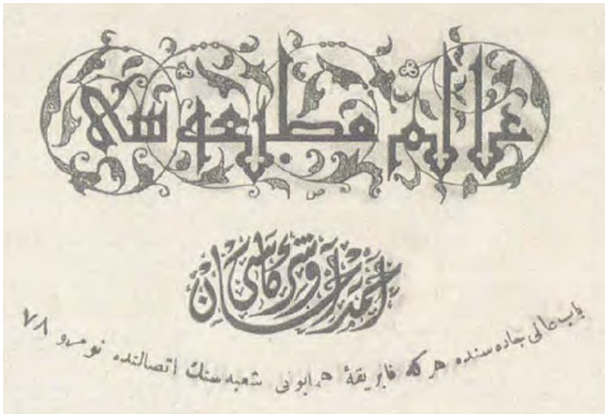 عالم مطبعه سی
احمد احسان وشركاسی
باب عالی جاده سنده هركه فابریقهٔ همایونی شعبه سنك اتصالنده نومرو ٧٨